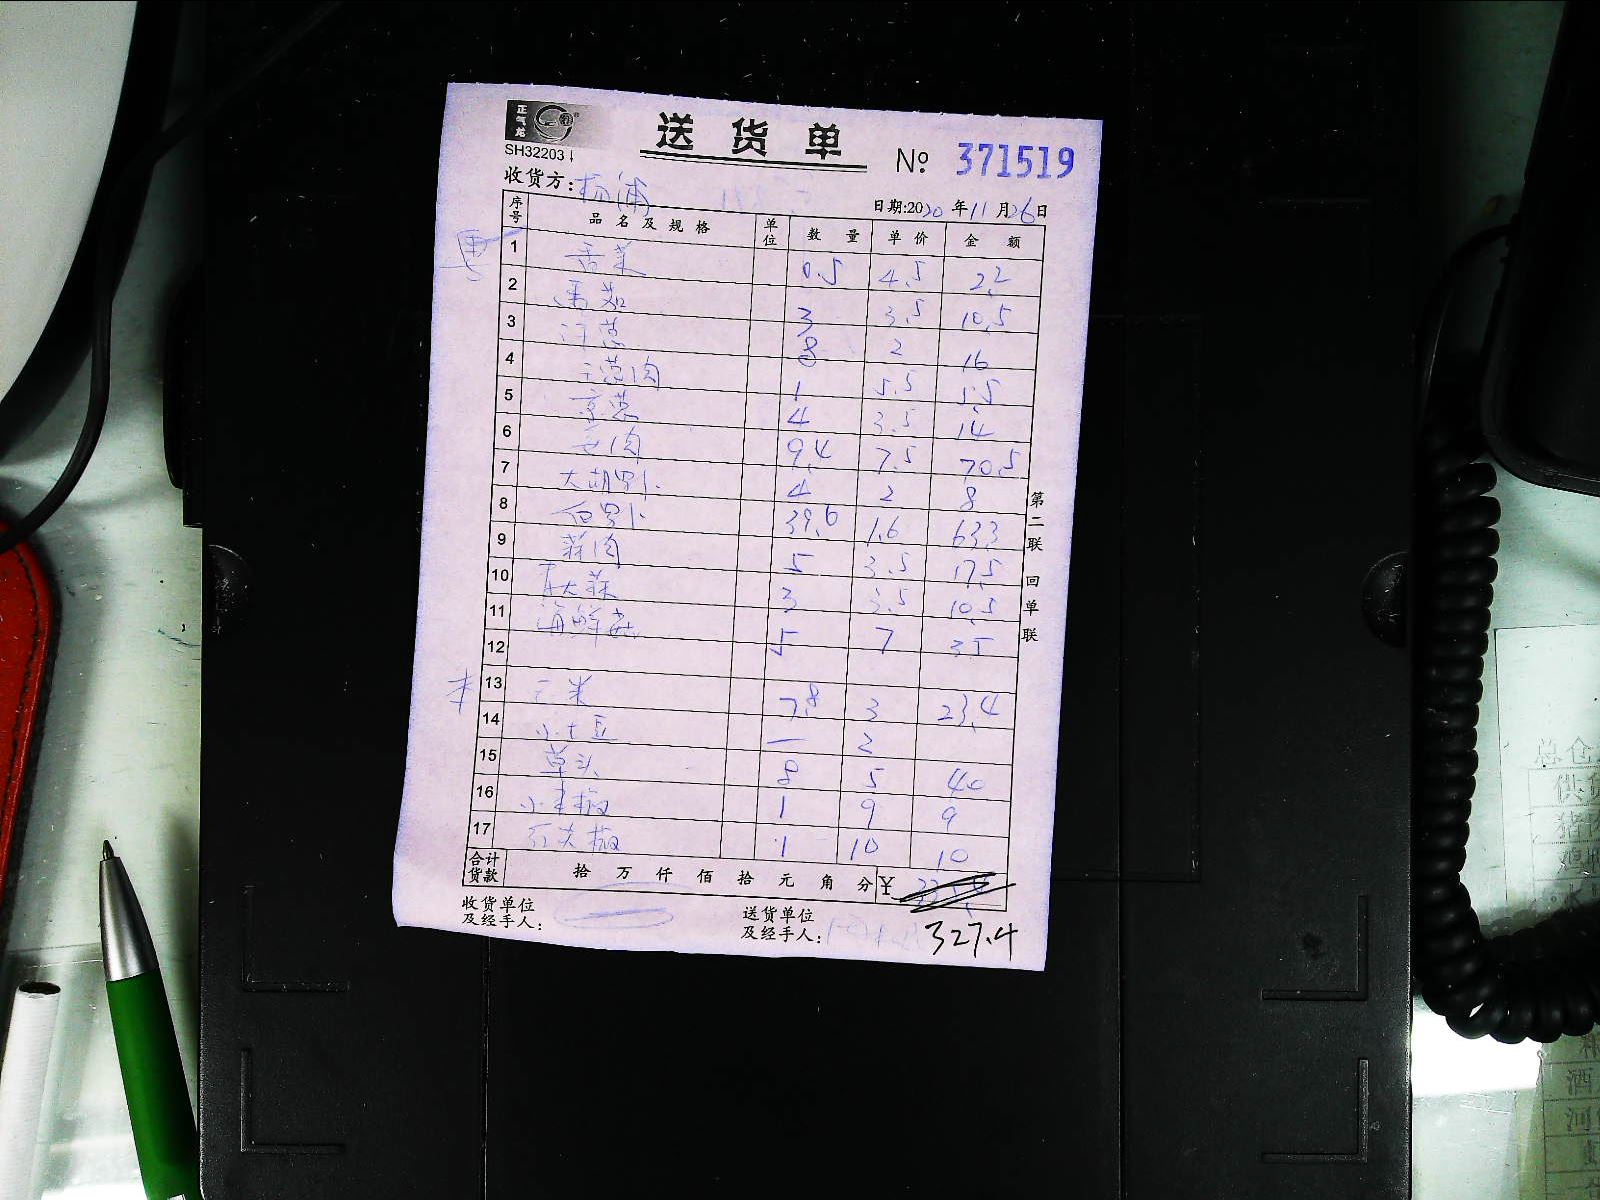 正气龙
SH32203
送货单
№ 371519
收货方: 杨浦
日期:2020年11月26日
序号 品名及规格 单位 数量 单价 金额
1 香菜 0.5 4.5 2.2
2 番茄 3 3.5 10.5
3 洋葱 8 2 16
4 3.5 5.5
5 京葱 4 3.5 14
6 9.4 7.5 70.5
7 大胡罗卜 4 2 8
8 白罗卜 39.6 1.6 63.3
9 蒜肉 5 3.5 17.5
10 青大蒜 3 3.5 10.5
11 海鲜菇 5 7 35
12
13 玉米 7.8 3 23.4
14 小土豆 — 2
15 草头 8 5 40
16 小青椒 1 9 9
17 红尖椒 1 10 10
合计货款 拾 万 仟 佰 拾 元 角 分 ¥
327.4
收货单位及经手人:
送货单位及经手人:
第二联 回单联
总仓
供货
猪
鸡
水
酒
河
虾